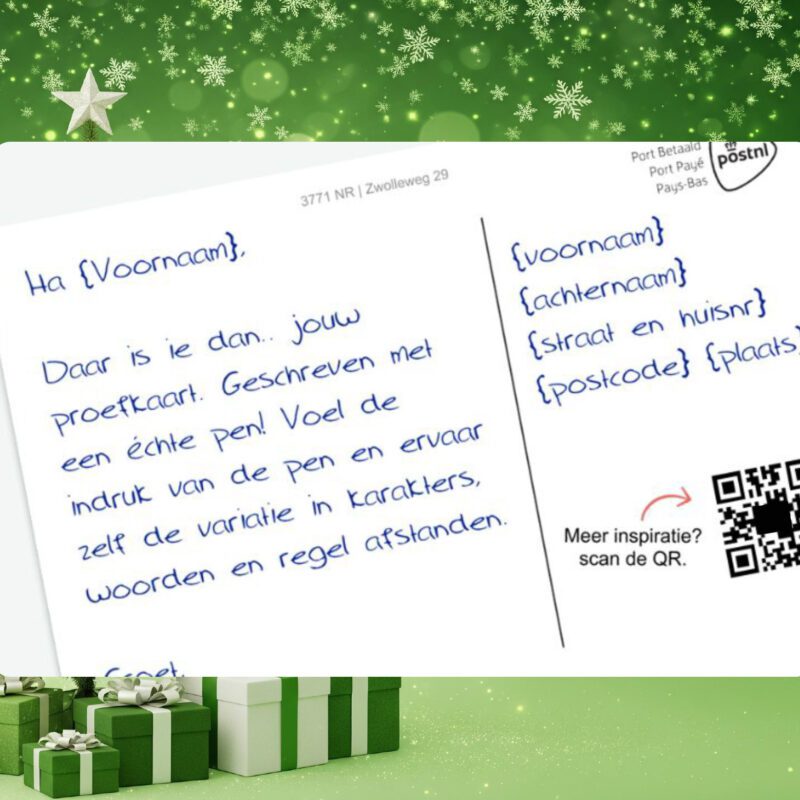 3771 NR | Zwolleweg 29
Port Betaald
Port Payé
Pays-Bas
postnl
Ha {Voornaam},
Daar is ie dan.. jouw
proefkaart. Geschreven met
een échte pen! Voel de
indruk van de pen en ervaar
zelf de variatie in karakters,
woorden en regel afstanden.
{voornaam}
{achternaam}
{straat en huisnr}
{postcode} {plaats}
Meer inspiratie?
scan de QR.